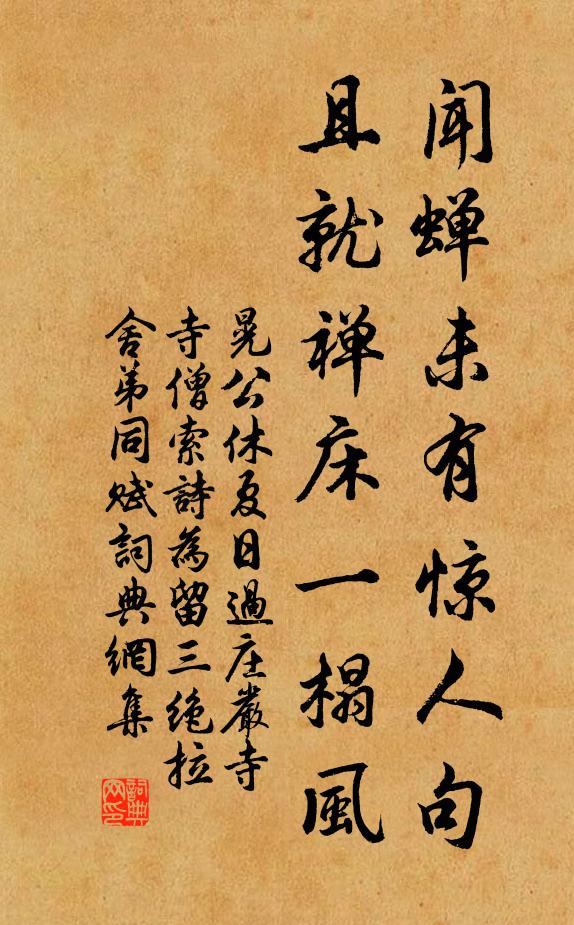 闻蝉未有惊人句
且就禅床一榻風
晃公休夏日過庄嚴寺
寺僧索詩為留三絶拉
舍弟同赋詞典網集
詞典网印